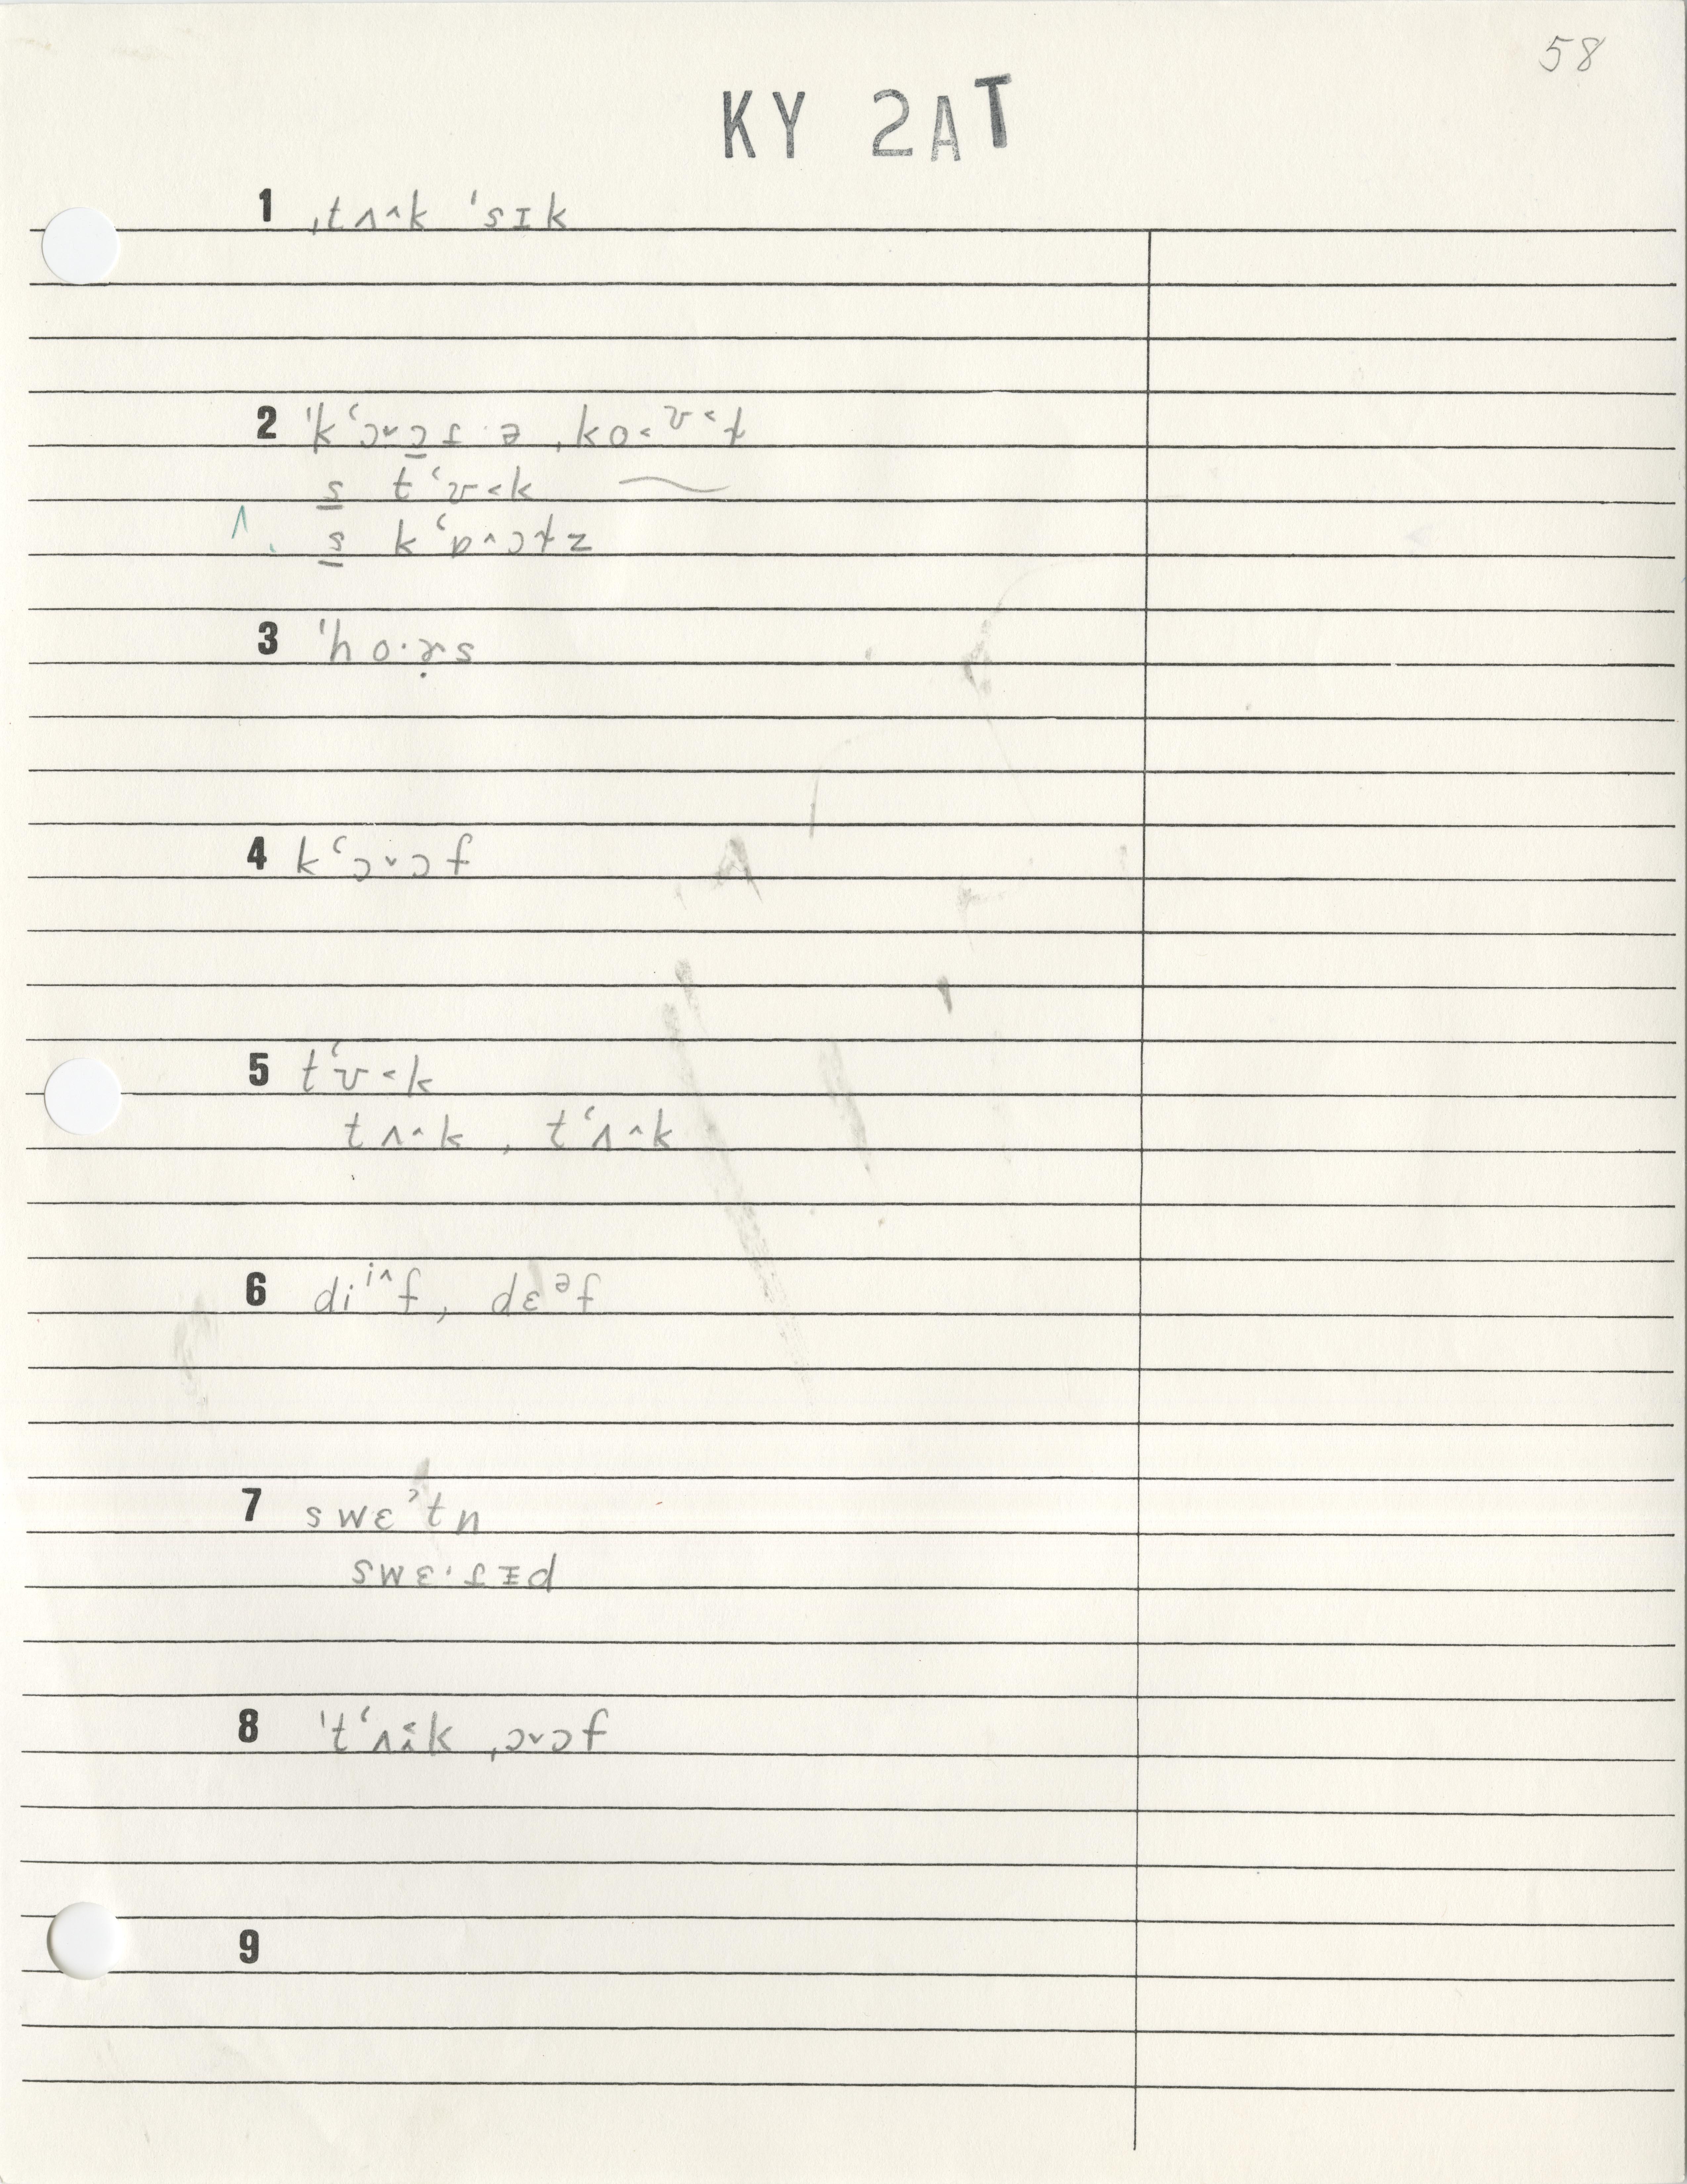 58
KY 2AT
1 ˌtʌ^k ˈsɪk
2 ˈkʻɔ˅ɔ̱ɾ·ə ˌko˂ʊ˂t
s̱ tʻʊ˂k
s̱ kʻɒ^ɔtz
3 ˈho·ɚ̣s
4 kʻɔ˅ɔf
5 tʻʊ˂k
tʌ^k , tʻʌ^k
6 diⁱ^f, dɛᵊf
7 swɛʔtn
swɛ·ɾɪd
8 ˈtʻʌ^k ˌɔ˅ɔf
9